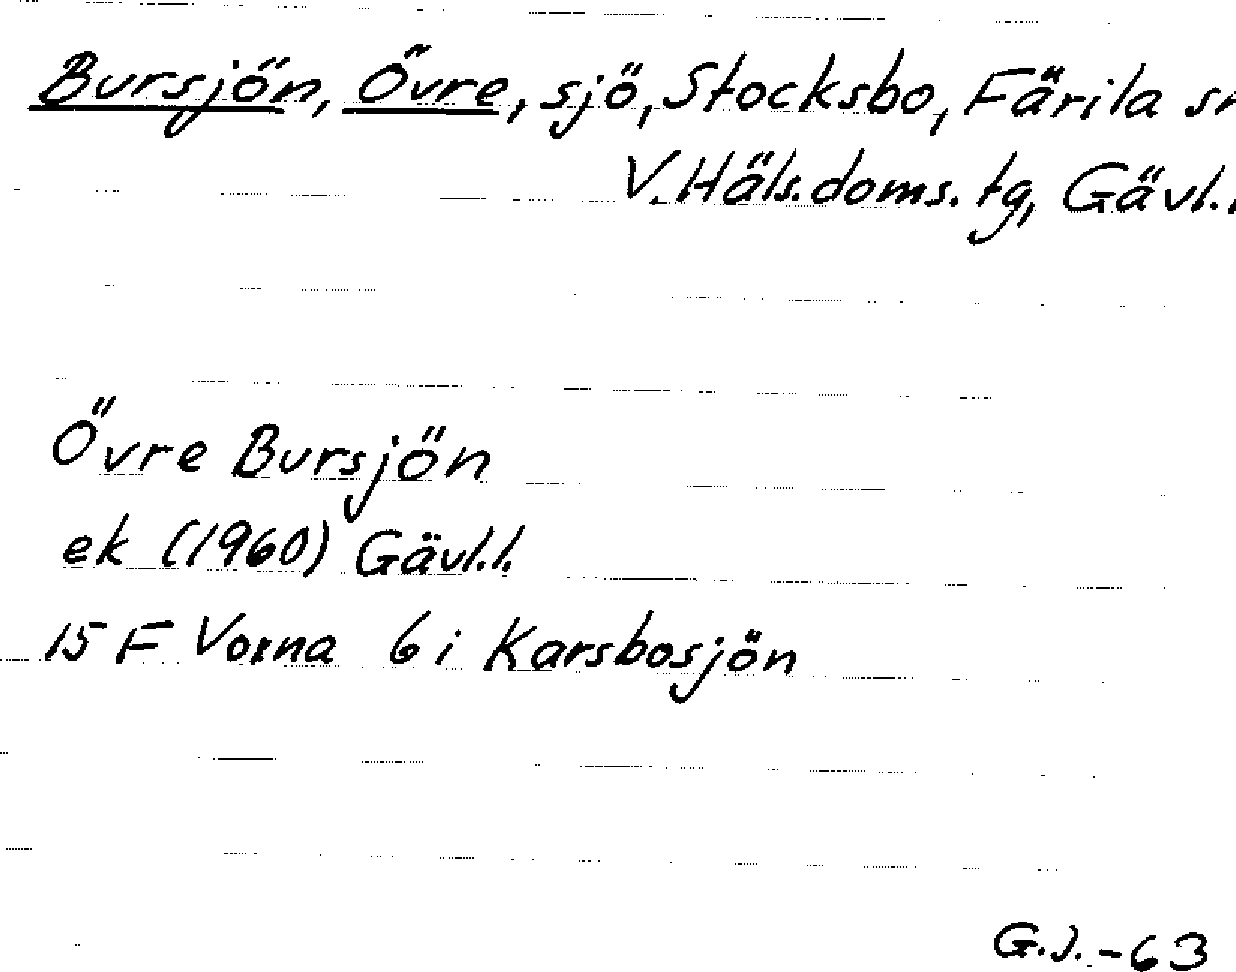 Bursjön, Övre, sjö, Stocksbo, Färila sn
V. Häls. doms. tg, Gävl.
Övre Bursjön
ek (1960) Gävl.l.
15 F Voxna 6 i Karsbosjön
G.J. -63